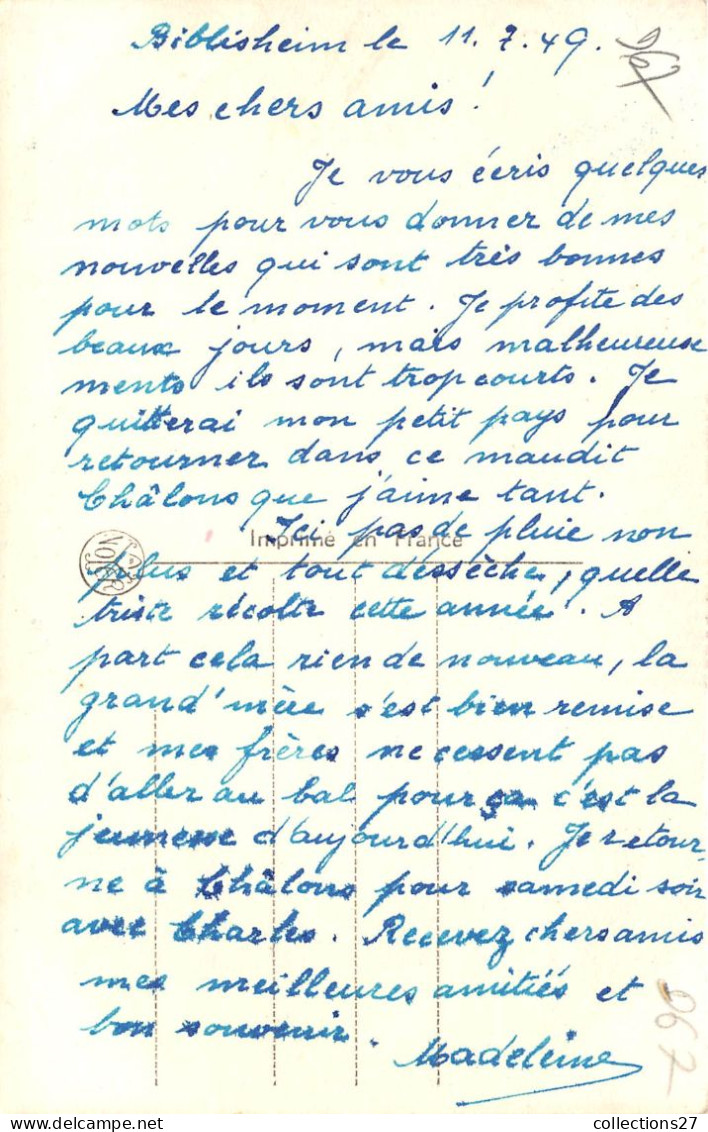 Biblisheim le 11.7.49.
967
Mes chers amis!
Je vous écris quelques
mots pour vous donner de mes
nouvelles qui sont très bonnes
pour le moment. Je profite des
beaux jours, mais malheureuse
ments ils sont trop courts. Je
quitterai mon petit pays pour
retourner dans ce maudit
Châlons que j'aime tant.
Imprimé en France
Ici pas de pluie non
plus et tout dessèche, quelle
triste récolte cette année. A
part cela rien de nouveau, la
grand'mère s'est bien remise
et mes frères ne cessent pas
d'aller au bal pour ça c'est la
jeunesse d'aujourd'hui. Je retour
ne à Châlons pour samedi soir
avec Charles. Recevez chers amis
mes meilleures amitiés et
bon souvenir.
Madeleine
967
collections27